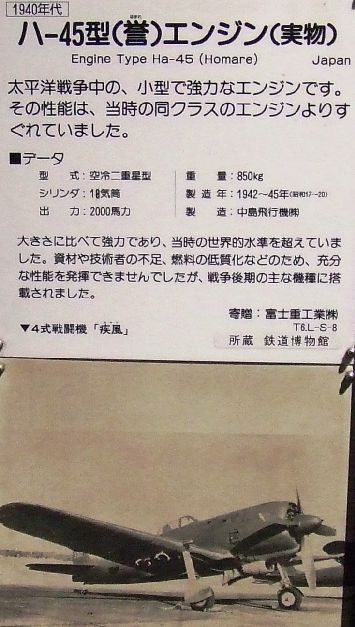 1940年代
ほまれ
ハ-45型(誉)エンジン(実物)
Engine Type Ha-45 (Homare) Japan
太平洋戦争中の、小型で強力なエンジンです。
その性能は、当時の同クラスのエンジンよりす
ぐれていました。
■データ
型 式:空冷二重星型 重 量:850kg
シリンダ:18気筒 製 造 年:1942~45年(昭和17~20)
出 力:2000馬力 製 造:中島飛行機㈱
大きさに比べて強力であり、当時の世界的水準を超えていま
した。資材や技術者の不足、燃料の低質化などのため、充分
な性能を発揮できませんでしたが、戦争後期の主な機種に搭
載されました。
寄贈:富士重工業㈱
T6.L-S-8
はやて
▼4式戦闘機「疾風」
所蔵 鉄道博物館